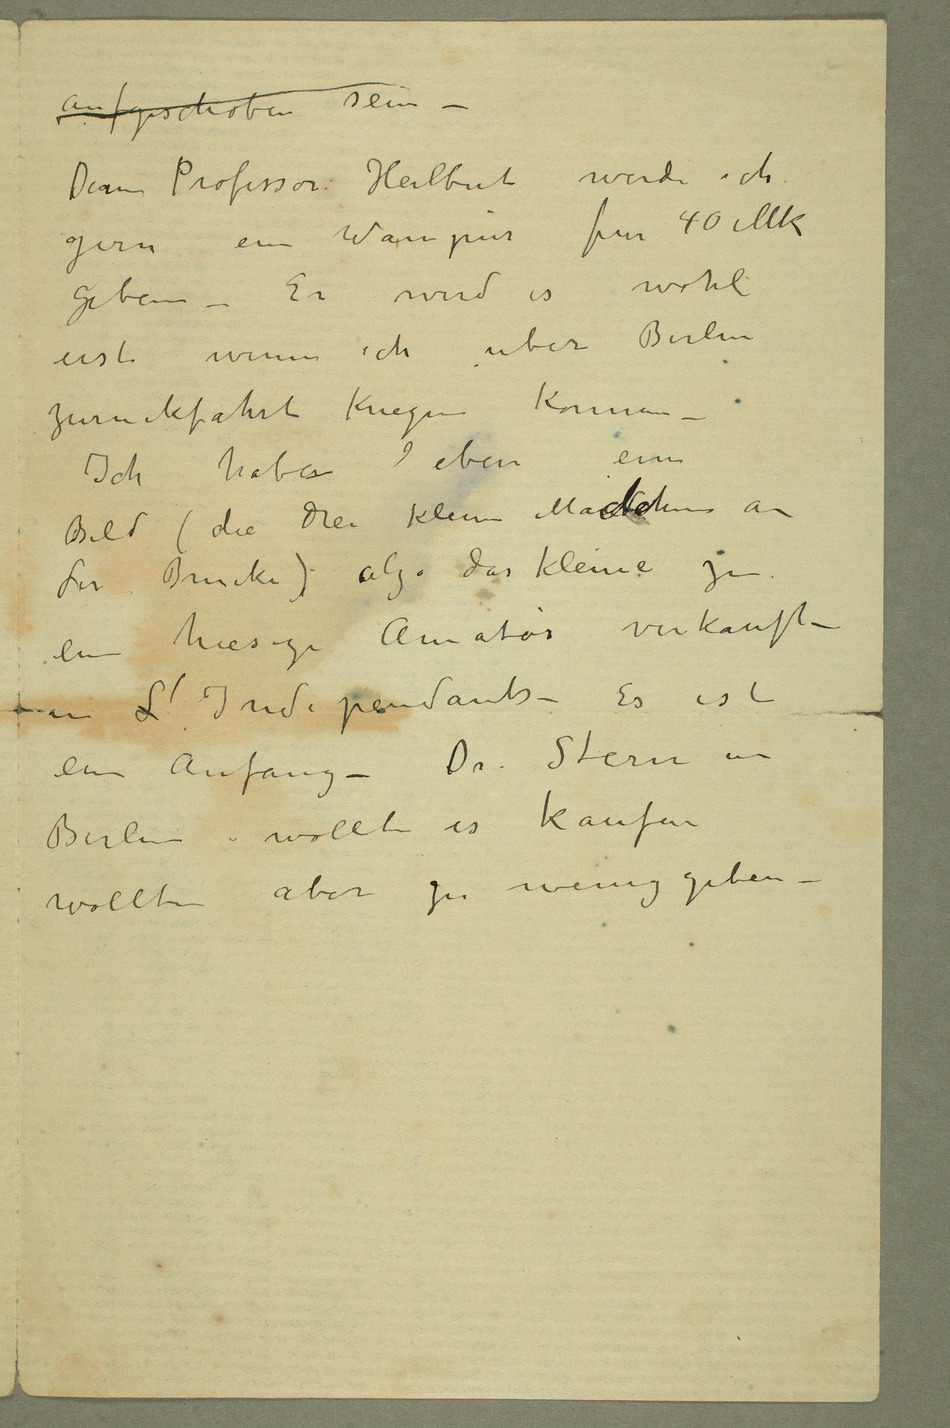 aufgeschoben sein –
Dem Professor Heilbut werde ich
gern ein Wampür für 40 Mk
geben – Er wird es wohl
erst wenn ich uber Berlin
zuruckfahrt kriegen konnen –
Ich habe eben ein
Bild (die drei kleine Madchen an
der Brucke) also das kleine zu
ein hiesige Amatör verkauft –
in L'Independants – Es ist
ein Anfang – Dr. Stern in
Berlin wollte es kaufen
wollte aber zu wenig geben –